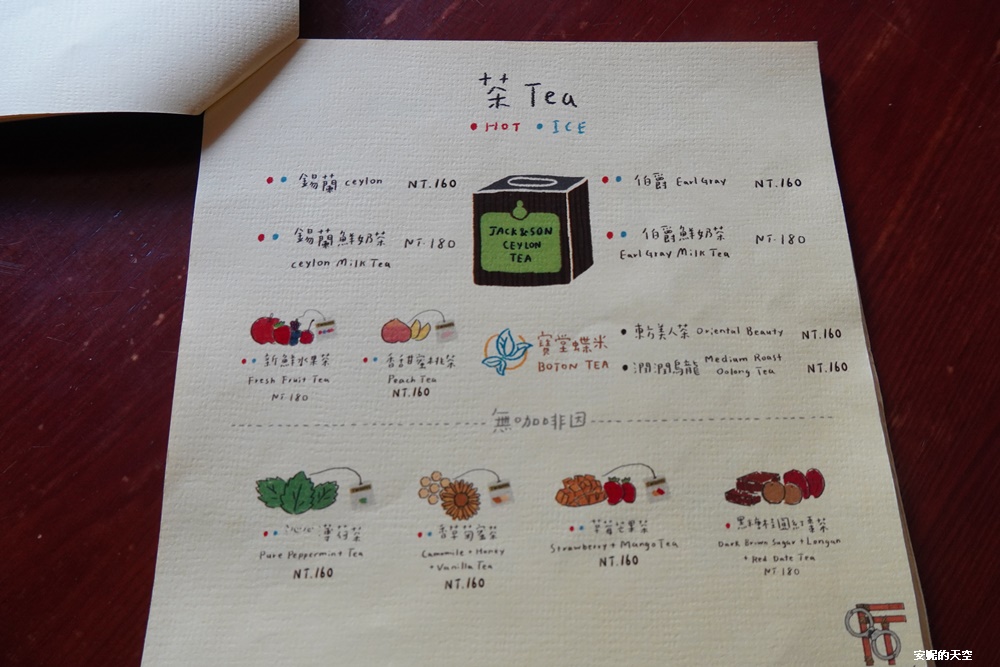 茶 Tea
HOT ICE
錫蘭 ceylon NT.160
錫蘭鮮奶茶 NT.180
ceylon Milk Tea
JACK&SON
CEYLON
TEA
伯爵 Earl Gray NT.160
伯爵鮮奶茶 NT.180
Earl Gray Milk Tea
新鮮水果茶
Fresh Fruit Tea
NT.180
香甜蜜桃茶
Peach Tea
NT.160
寶堂蝶米
BOTON TEA
東方美人茶 Oriental Beauty NT.160
潤潤烏龍 Medium Roast Oolong Tea NT.160
無咖啡因
沁心薄荷茶
Pure Peppermint Tea
NT.160
香草菊蜜茶
Camomile + Honey
+ Vanilla Tea
NT.160
草莓芒果茶
Strawberry + Mango Tea
NT.160
黑糖桂圓紅棗茶
Dark Brown Sugar + Longan
+ Red Date Tea
NT.180
安妮的天空